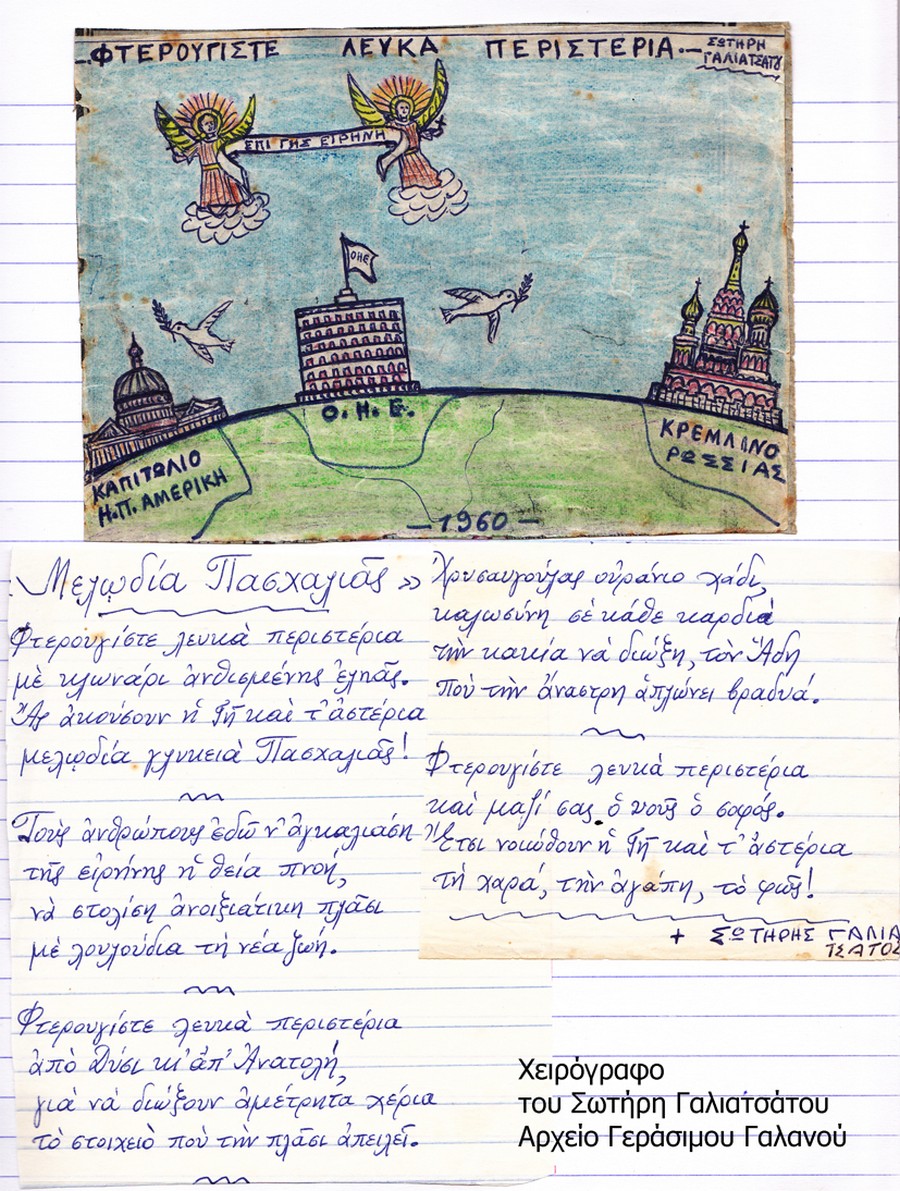 ΦΤΕΡΟΥΓΙΣΤΕ ΛΕΥΚΑ ΠΕΡΙΣΤΕΡΙΑ.
ΣΩΤΗΡΗ
ΓΑΛΙΑΤΣΑΤΟΥ
ΕΠΙ ΓΗΣ ΕΙΡΗΝΗ
ΟΗΕ
Ο.Η.Ε.
ΚΑΠΙΤΩΛΙΟ
Η.Π. ΑΜΕΡΙΚΗ
ΚΡΕΜΛΙΝΟ
ΡΩΣΣΙΑΣ
—1960—
Μελῳδία Πασχαλιᾶς »
Φτερουγίστε λευκὰ περιστέρια
μὲ κλωνάρι ἀνθισμένης ἐληᾶς.
Ἄς ἀκούσουν ἡ Γῆ καὶ τ' ἀστέρια
μελῳδία γλυκειὰ Πασχαλιᾶς!
Τοὺς ἀνθρώπους ἐδῶ ν' ἀγκαλιάση
τῆς εἰρήνης ἡ θεία πνοή,
νὰ στολίση ἀνοιξιάτικη πλᾶσι
μὲ λουλούδια τὴ νέα ζωή.
Φτερουγίστε λευκὰ περιστέρια
ἀπὸ Δύσι κι' ἀπ' Ἀνατολή,
γιὰ νὰ διώξουν ἀμέτρητα χέρια
τὸ στοιχειὸ ποὺ τὴν πλᾶσι ἀπειλεῖ.
Χρυσαυγούλας οὐράνιο χάδι,
καλωσύνη σὲ κάθε καρδιὰ
τὴν κακία νὰ διώξη, τὸν Ἅδη
ποὺ τὴν ἄναστρη ἁπλώνει βραδυά.
Φτερουγίστε λευκὰ περιστέρια
καὶ μαζί σας ὁ νοῦς ὁ σοφός.
Ἔτσι νοιώθουν ἡ Γῆ καὶ τ' ἀστέρια
τὴ χαρά, τὴν ἀγάπη, τὸ φῶς!
+ ΣΩΤΗΡΗΣ ΓΑΛΙΑ
ΤΣΑΤΟΣ
Χειρόγραφο
του Σωτήρη Γαλιατσάτου
Αρχείο Γεράσιμου Γαλανού